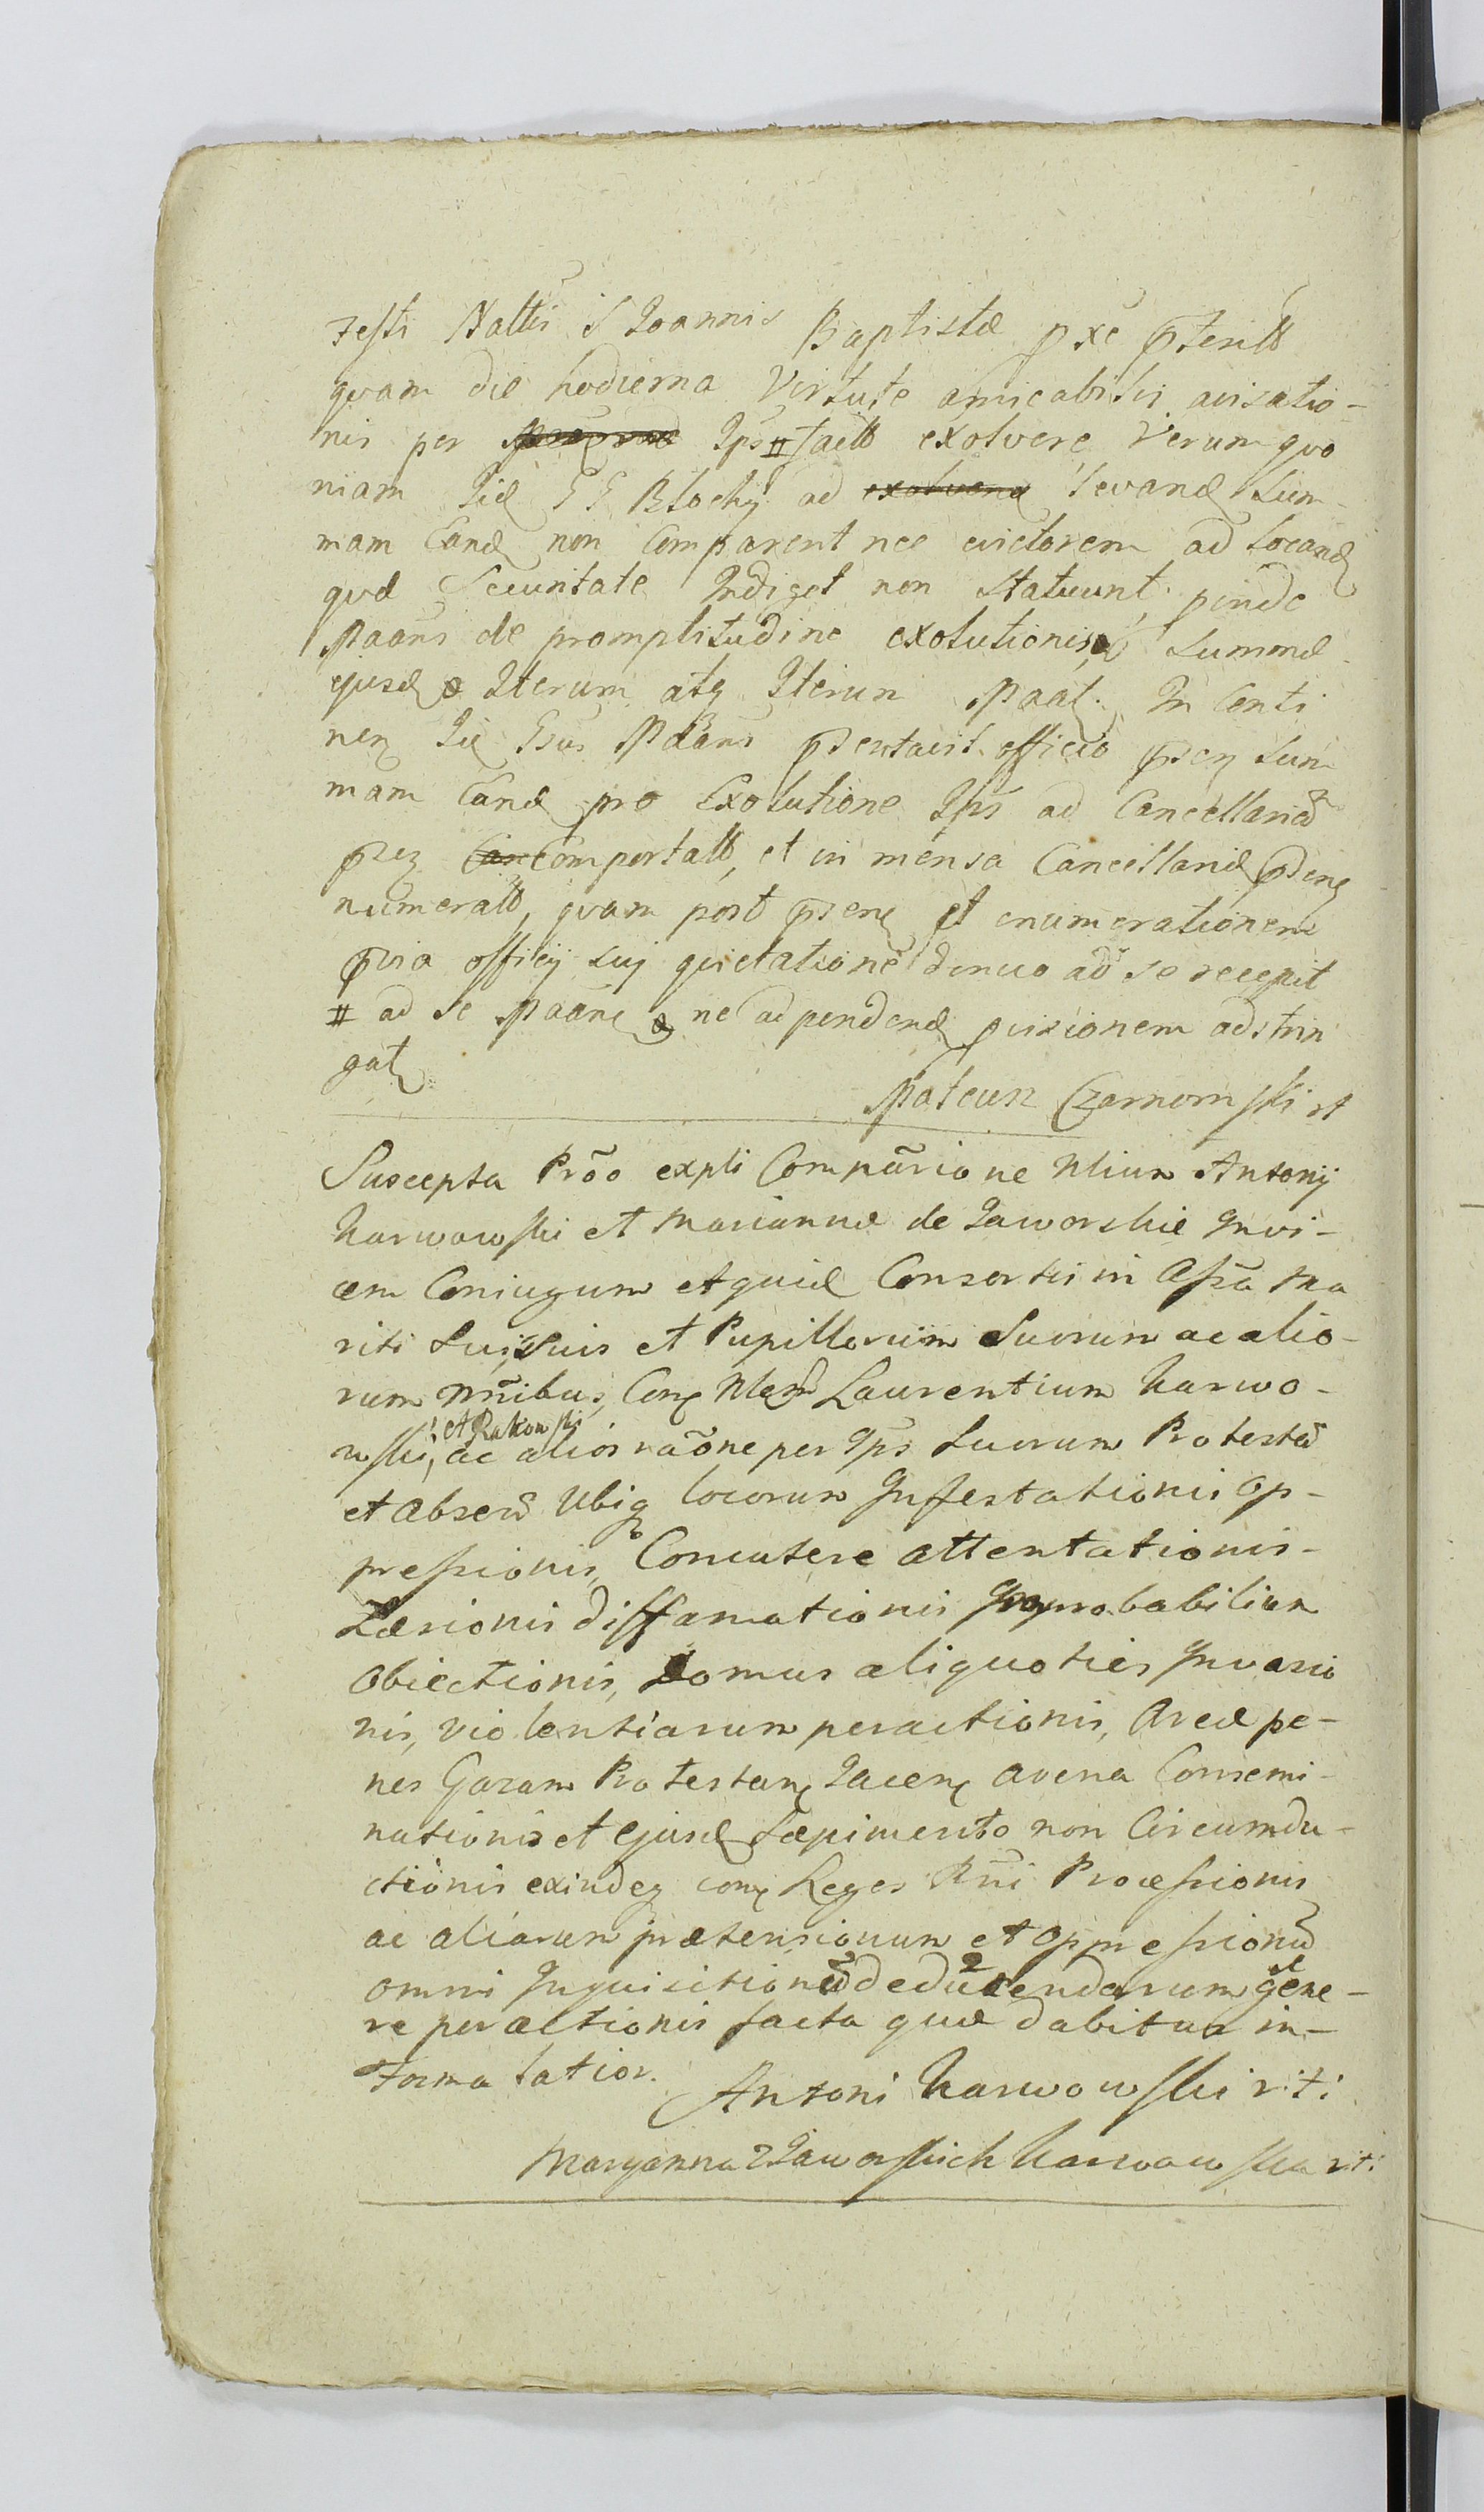 Festi Nattis S Joannis Baptistæ pxe pteritt
quam die hodierna Virtute amicabilis avisatio-
nis per Ips # factt exolvere Verum quo
niam Iid GG Błockij ad exolvend levand Sum
mam Eand non Comparent nec evictorem ad locand
quæ Securitate Indiget non Statuunt, pinde
Maãns de promptitudine exolutionis Summæ
ejusd Iterum atq Iterum Maat. In Conti
nen Iid Gsus Maãns pdentavit officio psen Sum
mam Eand pro Exolutione Ips ad Cancellariã
psen Can Comportatt, et in mensa Cancellariæ psens
numeratt, quam post psens et enumerationem
pvia officij sui quietatione denuo ad se recepit
# ad se Maãne ne ad pendend pvisionem adstrin
gat
Mateusz Czarnomski rt
Suscepta Prõo expli Compãrione Nlium Antonij
Karwowski et Mariannæ de Jaworskie Invi-
cem Coniugum et quid Consortis in Assã Ma
riti Sui, Suis et Pupillorum Suorum ac alio-
rum Nñibus, Con Nlem Laurentium Karwo-
wski, et Rakowski ac alios raõne per Ips Suorum Protestã
et Absen Ubiq locorum Infestationis Op-
pressionis, Concutere attentationis-
Læsionis diffamationis Improbabilium
Obiectionis, Domus aliquoties Invasio
nis, violentiarum peractionis, Areæ pe-
nes Gazam Protestan Jacen avena Consemi-
nationis et ejusd Sæpimento non Circumdu-
ctionis exindeq con Leges Rñi Processionis
ac aliarum prætensionum et Oppressionũ
omni Inquisitionũ deducendarum gene-
re peractionis facta quæ dabitur in-
forma latior. Antoni Karwowski r.t:
Maryanna z Jaworskich Karwowska r.t: